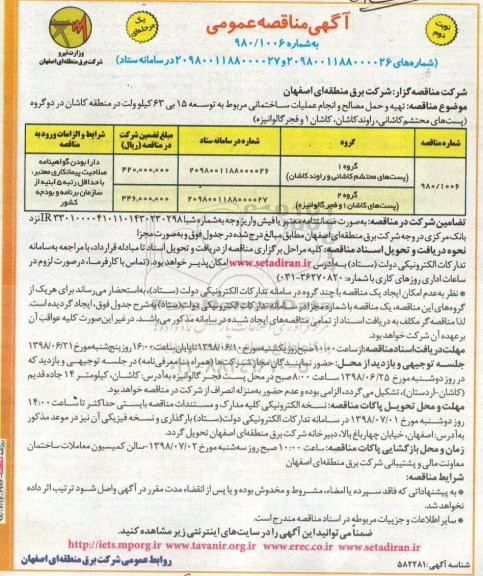 نوبت دوم
آگهی مناقصه عمومی
یک مرحله‌ای
به شماره ۹۸۰/۱۰۰۶
(شماره‌های ۲۰۹۸۰۰۱۱۸۸۰۰۰۰۲۶ و ۲۰۹۸۰۰۱۱۸۸۰۰۰۰۲۷ در سامانه ستاد)
وزارت نیرو
شرکت برق منطقه‌ای اصفهان
شرکت مناقصه گزار: شرکت برق منطقه‌ای اصفهان
موضوع مناقصه: تهیه و حمل مصالح و انجام عملیات ساختمانی مربوط به توسعه ۱۵ بی ۶۳ کیلوولت در منطقه کاشان در دو گروه
(پست‌های محتشم کاشانی، راوند کاشان، کاشان ۱ و فجر گالوانیزه)
شماره مناقصه | گروه | شماره سامانه ستاد | مبلغ تضمین شرکت در مناقصه (ریال) | شرایط و الزامات ورود به مناقصه
۹۸۰/۱۰۰۶ | گروه ۱ (پست‌های محتشم کاشانی و راوند کاشان) | ۲۰۹۸۰۰۱۱۸۸۰۰۰۰۲۶ | ۴۲۰,۰۰۰,۰۰۰ | دارا بودن گواهینامه صلاحیت پیمانکاری معتبر، با حداقل رتبه ۵ ابنیه از سازمان برنامه و بودجه کشور
گروه ۲ (پست‌های کاشان ۱ و فجر گالوانیزه) | ۲۰۹۸۰۰۱۱۸۸۰۰۰۰۲۷ | ۴۴۶,۰۰۰,۰۰۰
تضامین شرکت در مناقصه: به صورت ضمانتنامه معتبر یا فیش واریز وجه به شماره شبا IR ۳۳۰۱۰۰۰۰۴۱۰۱۱۰۱۴۳۰۲۳۰۲۹۸ نزد
بانک مرکزی در وجه شرکت برق منطقه‌ای اصفهان مطابق مبالغ درج شده در جدول فوق و به صورت مجزا
نحوه دریافت و تحویل اسناد مناقصه: کلیه مراحل برگزاری مناقصه از دریافت و تحویل اسناد تا مبادله قرارداد، با مراجعه به سامانه
تدارکات الکترونیکی دولت (ستاد) به آدرس www.setadiran.ir امکان پذیر خواهد بود. (تماس با کارفرما، در صورت لزوم در
ساعات اداری روزهای کاری با شماره: ۳۶۲۷۰۸۲۰-۰۳۱)
* نظر به عدم امکان ایجاد یک مناقصه با چند گروه در سامانه تدارکات الکترونیکی دولت (ستاد)، به استحضار می‌رساند برای هر یک از
گروه‌های این مناقصه، یک مناقصه با شماره مجزا در سامانه تدارکات الکترونیکی دولت (ستاد) به شرح جدول فوق، ایجاد گردیده است.
لذا مناقصه گر مکلف به دریافت اسناد از تمامی مناقصه‌های ایجاد شده در سامانه مذکور می‌باشد. در غیر این صورت کلیه عواقب آن
بر عهده آن شرکت خواهد بود.
مهلت دریافت اسناد مناقصه: از ساعت ۱۰:۰۰ صبح روز یکشنبه مورخ ۱۳۹۸/۰۶/۱۰ تا پایان ساعت ۱۶:۰۰ روز پنج شنبه مورخ ۱۳۹۸/۰۶/۲۱
جلسه توجیهی و بازدید از محل: حضور نمایندگان مجاز شرکت‌ها (همراه با معرفی نامه) در جلسه توجیهی و بازدید که
در روز دوشنبه مورخ ۱۳۹۸/۰۶/۲۵ ساعت ۸:۰۰ صبح در محل پست فجر گالوانیزه به آدرس: کاشان، کیلومتر ۱۴ جاده قدیم
(کاشان-اردستان)، تشکیل می‌گردد، الزامی بوده و عدم حضور به منزله انصراف از شرکت در مناقصه خواهد بود.
مهلت و محل تحویل پاکات مناقصه: نسخه الکترونیکی کلیه مدارک و مستندات مناقصه بایستی حداکثر تا ساعت ۱۴:۰۰
روز دوشنبه مورخ ۱۳۹۸/۰۷/۰۱ در سامانه تدارکات الکترونیکی دولت (ستاد) بارگذاری و نسخه فیزیکی آن نیز در موعد مذکور
به آدرس: اصفهان، خیابان چهارباغ بالا، دبیرخانه شرکت برق منطقه‌ای اصفهان تحویل گردد.
زمان و محل بازگشایی پاکات مناقصه: ساعت ۱۰:۰۰ صبح روز سه شنبه مورخ ۱۳۹۸/۰۷/۰۲-سالن کمیسیون معاملات ساختمان
معاونت مالی و پشتیبانی شرکت برق منطقه‌ای اصفهان
شرایط مناقصه:
* به پیشنهاداتی که فاقد سپرده یا امضاء، مشروط و مخدوش بوده و یا پس از انقضاء مدت مقرر در آگهی واصل شود ترتیب اثر داده
نخواهد شد.
* سایر اطلاعات و جزییات مربوطه در اسناد مناقصه مندرج است.
ضمناً می‌توانید این آگهی را در سایت‌های اینترنتی زیر مشاهده کنید.
http://iets.mporg.ir www.tavanir.org.ir www.erec.co.ir www.setadiran.ir
شناسه آگهی: ۵۸۲۲۸۱
روابط عمومی شرکت برق منطقه‌ای اصفهان